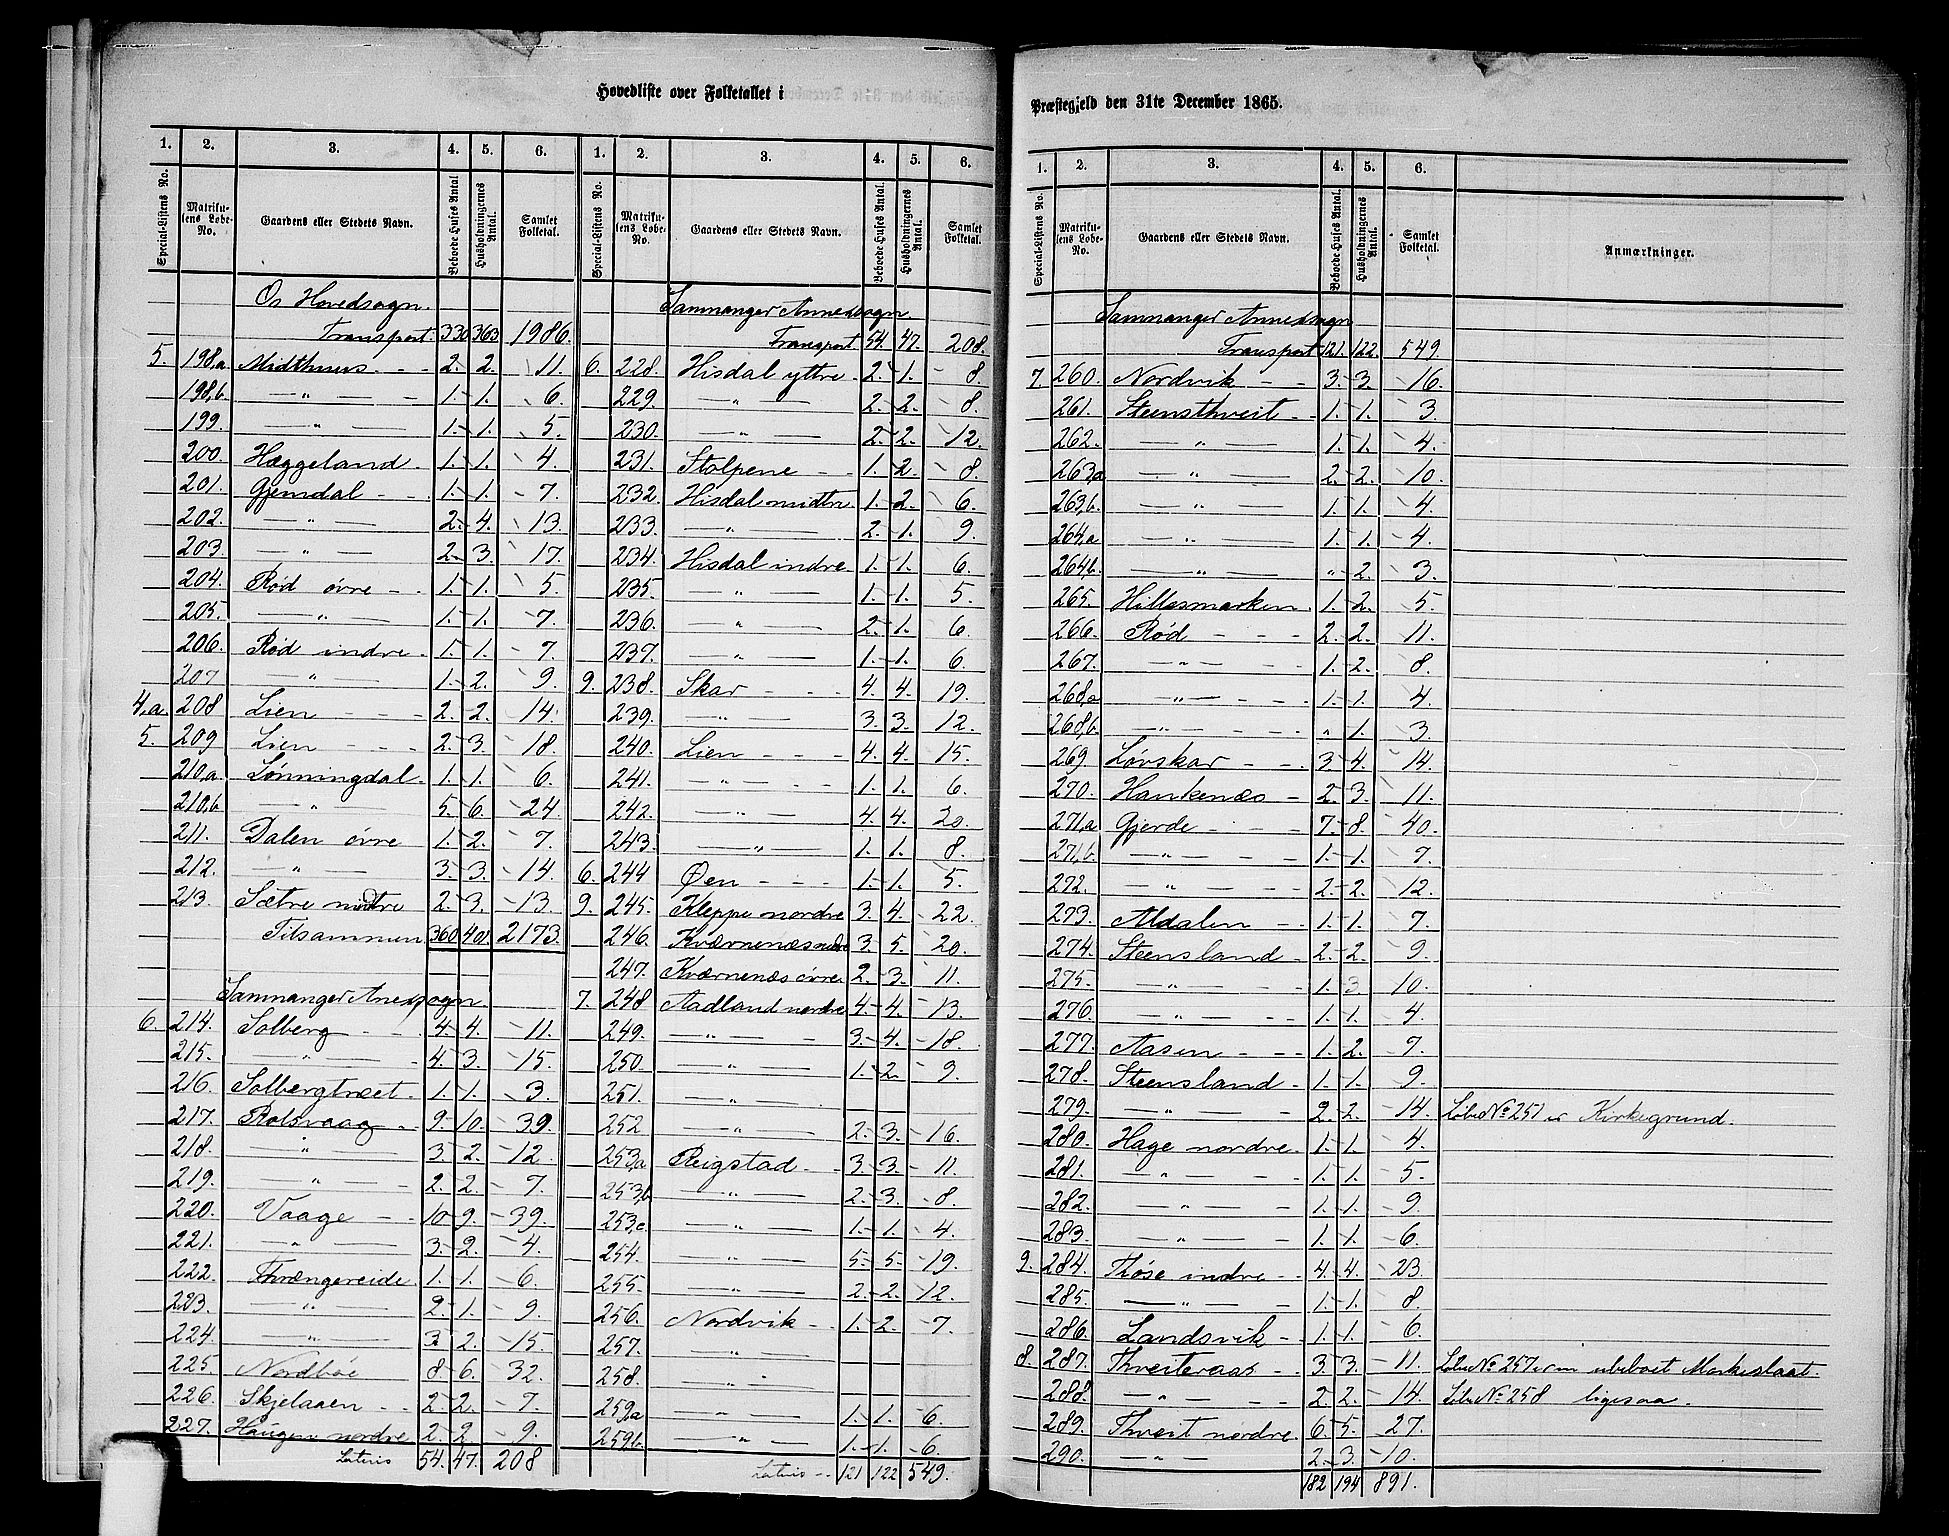 Hovedliste over Folketallet i
Præstegjeld den 31te December 1865.
1. 2. 3. 4. 5. 6.
Special-Listens No. Matrikulens Løbe-No. Gaardens eller Stedets Navn. Beboede Huses Antal Husholdningernes Antal. Samlet Folketal.
Os Hovedsogn.
Transport. 330 363 1986.
5. 198,a Midthuus - - - 2. 2. 11.
198,b. — „ — 1. 1. 6.
199. — „ — 1. 1. 5.
200. Hæggeland - 1. 1. 4.
201. Gjemdal - - 1. 1. 7.
202. — „ — 2. 4. 13.
203. — „ — 2. 3. 17.
204. Rød øvre - - 1. 1. 5.
205. — „ — 1. 1. 7.
206. Rød indre - 1. 1. 7.
207 — „ — 1. 2. 9.
4,a. 208 Lien - - - 2. 2. 14.
5. 209 Lien - - - 2. 3. 18.
210,a. Lønningdal - 1. 1. 6.
210,b — „ — 5. 6. 24.
211. Dalen øvre 1. 2. 7.
212. — „ — 3. 3. 14.
213. Sætre midtre 2. 3. 13.
Tilsammen 360 401 2173.
Samnanger Anexsogn.
6. 214. Solberg - - 4. 4. 11.
215. — „ — 4. 3. 15.
216. Solbergtræet - 1. 1. 3.
217. Rolsvaag - 9. 10. 39.
218. — „ — 3. 2. 12.
219. — „ — 2. 2. 7.
220. Vaage - - 10. 9. 39.
221. — „ — 3. 2. 4.
222. Thrængereide 1. 1. 6.
223. — „ — 2. 1. 9.
224. — „ — 3. 2. 15.
225. Nordbøe 8. 6. 32.
226. Skjelaaen - - 2. 2. 7.
227. Haugen nordre 2. 2. 9.
Lateris 54. 47. 208
1. 2. 3. 4. 5. 6.
Special-Listens No. Matrikulens Løbe-No. Gaardens eller Stedets Navn. Beboede Huses Antal. Husholdningernes Antal. Samlet Folketal.
Samnanger Annexsogn.
Transport 54. 47. 208.
6. 228. Hisdal yttre. 2. 1. 8.
229. — „ — 2. 2. 8.
230. — „ — 2. 2. 12.
231. Stolpene - - 1. 2. 8.
232. Hisdal midtre. 1. 2. 6.
233. — „ — 2. 1. 9.
234. Hisdal indre. 1. 1. 6.
235. — „ — 1. 1. 5.
236. — „ — 2. 1. 6.
237. — „ — 1. 1. 6.
9. 238. Skar - - - 4. 4. 19.
239. — „ — 3. 3. 12.
240. Lien - - - 4. 4. 15.
241. — „ — 1. 1. 6.
242. — „ — 4. 4. 20.
243. — „ — 1. 1. 8.
6. 244 Øen - - - 1. 1. 5.
9. 245. Kleppe nordre 3. 4. 22.
246. Kværnenæs nedre 3. 5. 20.
247. Kværnenæs øvre 2. 3. 11.
7. 248 Aadland nordre 4. 4. 13.
249. — „ — 3. 4. 18.
250. — „ — 1. 2. 9.
251. — „ —
252 — „ — 2. 3. 16.
253,a Reigstad - - 3. 3. 11.
253,b — „ — 2. 3. 8.
253,c — „ — 1. 1. 4.
254. — „ — 5. 5. 19.
255. — „ — 2. 2. 12.
256. Nordvik - - 1. 2. 7.
257. — „ —
258. — „ —
259,a — „ — 1. 1. 6.
259b. — „ — 1. 1. 6.
Lateris - - 121 122 549.
1. 2. 3. 4. 5. 6.
Special-Listens No. Matrikulens Løbe-No. Gaardens eller Stedets Navn. Beboede Huses Antal. Husholdningernes Antal. Samlet Folketal. Anmærkninger.
Samnanger Annexsogn
Transport 121. 122. 549.
7. 260. Nordvik - - 3. 3. 16.
261. Steensthveit - 1. 1. 3.
262. — „ — 1. 1. 4.
263,a — „ — 2. 2. 10.
263,b. — „ — 1. 1. 4.
264,a — „ — 1. 1. 4.
264,b. — „ — „ 2. 3.
265. Hillesmarken. 1. 2. 5.
266. Rød - - - 2. 2. 11.
267. — „ — 1. 2. 8.
268,a — „ — 1. 1. 4.
268,b — „ — „ 1. 3.
269 Løvskar - - 3. 4. 14.
270. Hankenæs - 2. 3. 11.
271,a Gjerde - - - 7. 8. 40.
271,b. — „ — 1. 1. 7.
272. — „ — 2. 2. 12.
273. Aldalen - 1. 1. 7.
274. Steensland - 2. 2. 9.
275. — „ — 1. 3 10.
276. — „ — 1. 1. 4.
277. Aasen - - - 1. 2. 7.
278. Steensland - 1. 1. 9.
279. — „ — 2. 2. 14. Løbe No. 251 er Kirkegrund.
280. Hage nordre. 1. 1. 4.
281. — „ — 1. 1. 5.
282. — „ — 1. 1. 9.
283. — „ — 1. 1. 6.
9. 284. Tøse indre - - 4. 4. 23.
285. — „ — 1. 1. 8.
286. Landsvik - 1. 1. 6.
8. 287. Thveiteraas - 3. 3. 11. Løbe No. 257 er en ubeboet Markeslaat.
288. — „ — 2. 2. 14. Løbe No. 258 ligesaa.
289. Thveit nordre. 6. 5. 27.
290. — „ — 2. 3. 10.
182 194 891.